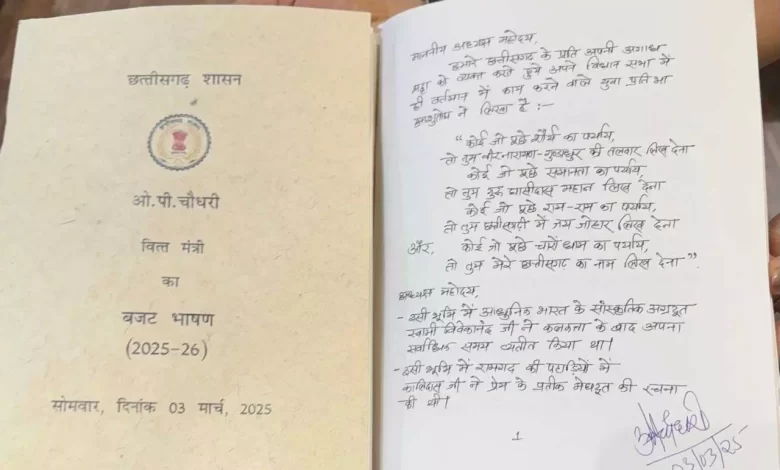 छत्तीसगढ़ शासन
ओ.पी.चौधरी
वित्त मंत्री
का
बजट भाषण
(2025-26)
सोमवार, दिनांक 03 मार्च, 2025
माननीय अध्यक्ष महोदय,
हमारे छत्तीसगढ़ के प्रति अपनी अगाध
श्रद्धा को व्यक्त करते हुये अपने विधान सभा में
ही वर्तमान में काम करने वाले युवा प्रतिभा
ने लिखा है :-
“ कोई जो पूछे शौर्य का पर्याय,
तो तुम वीरनारायण-गुण्डाधुर की तलवार लिख देना
कोई जो पूछे समानता का पर्याय,
तो तुम गुरु घासीदास महान लिख देना
कोई जो पूछे राम-राम का पर्याय,
तो तुम छत्तीसगढ़ी में जय जोहार लिख देना
और, कोई जो पूछे चारों धाम का पर्याय,
तो तुम मेरे छत्तीसगढ़ का नाम लिख देना”
अध्यक्ष महोदय,
- इसी भूमि में आधुनिक भारत के सांस्कृतिक अग्रदूत
स्वामी विवेकानंद जी ने कलकत्ता के बाद अपना
सर्वाधिक समय व्यतीत किया था।
- इसी भूमि में रामगढ़ की पहाड़ियों में
कालिदास जी ने प्रेम के प्रतीक मेघदूत की रचना
की थी।
1
03/03/25